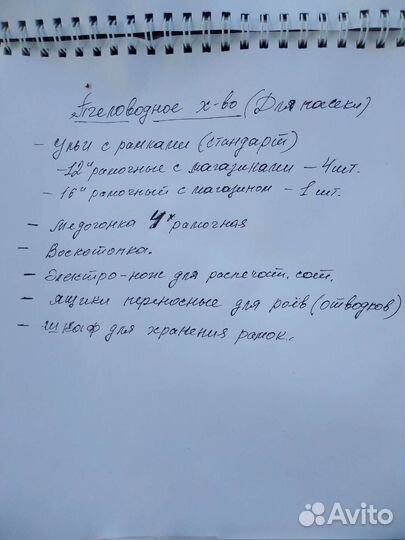 Пчеловодное х-во (Для пасеки)
- Ульи с рамками (стандарт)
- 12и рамочные с магазинами - 4 шт.
- 16и рамочный с магазином - 1 шт.
- Медогонка 4х рамочная
- Воскотопка.
- Электро-нож для распечат. сот.
- Ящики переносные для роёв (отводков)
- Шкаф для хранения рамок.
Avito